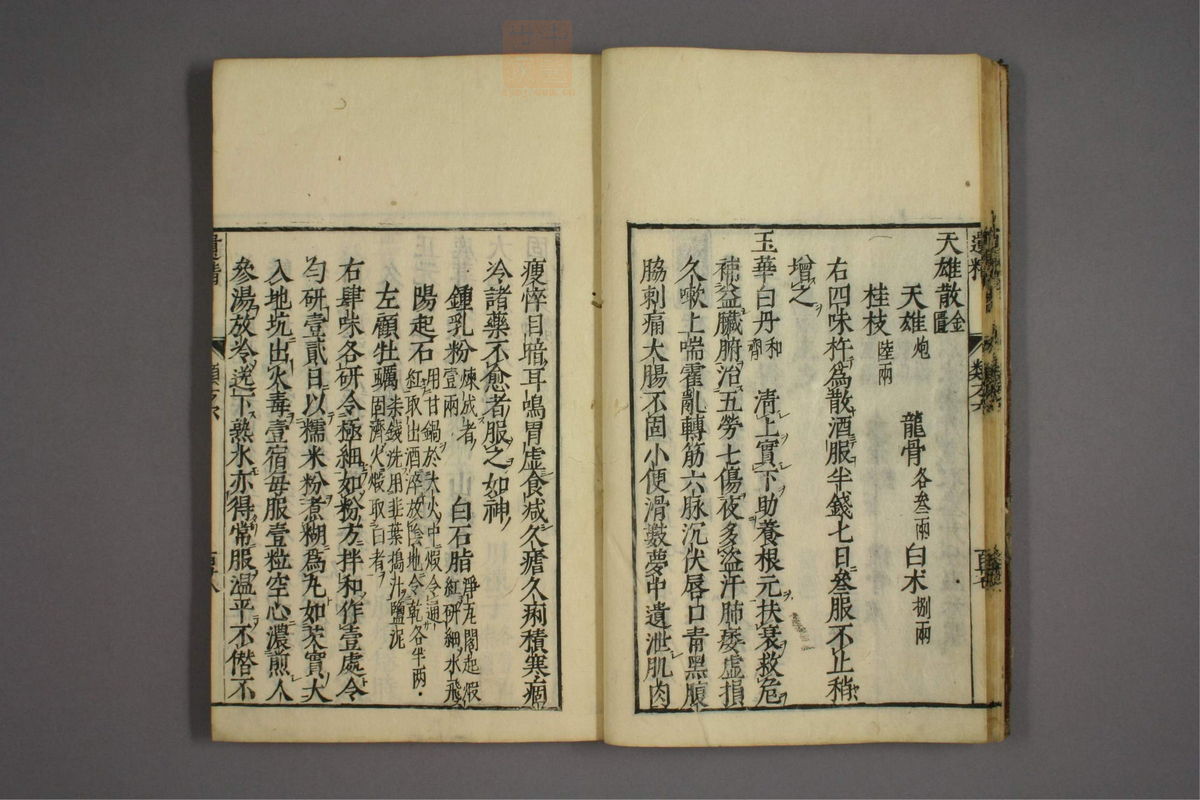 遺精
類之六
天雄散金匱
天雄炮 龍骨各叁兩 白朮捌兩
桂枝陸兩
右四味杵為散酒服半錢七日叁服不止稍
增之
玉華白丹和齊 清上實下助養根元扶衰救危
補益臟腑治五勞七傷夜多盜汗肺痿虛損
久嗽上喘霍亂轉筋六脉沉伏唇口青黑腹
脇刺痛大腸不固小便滑數夢中遺泄肌肉
瘦悴目暗耳鳴胃虛食减久瘧久痢積寒痼
冷諸藥不愈者服之如神
鍾乳粉煉成者壹兩 白石脂淨瓦閣起煅紅研細水飛
陽起石用甘鍋於大火中煅令通紅取出酒淬放陰地令乾各半两
左顧牡蠣柒錢洗用韭葉搗汁鹽泥固濟火煅取白者
右肆味各研令極細如粉方拌和作壹處令
匀研壹貳日以糯米粉煮糊為丸如芡實大
入地坑出火毒壹宿每服壹粒空心濃煎人
參湯放冷送下熟水亦得常服溫平不僭不